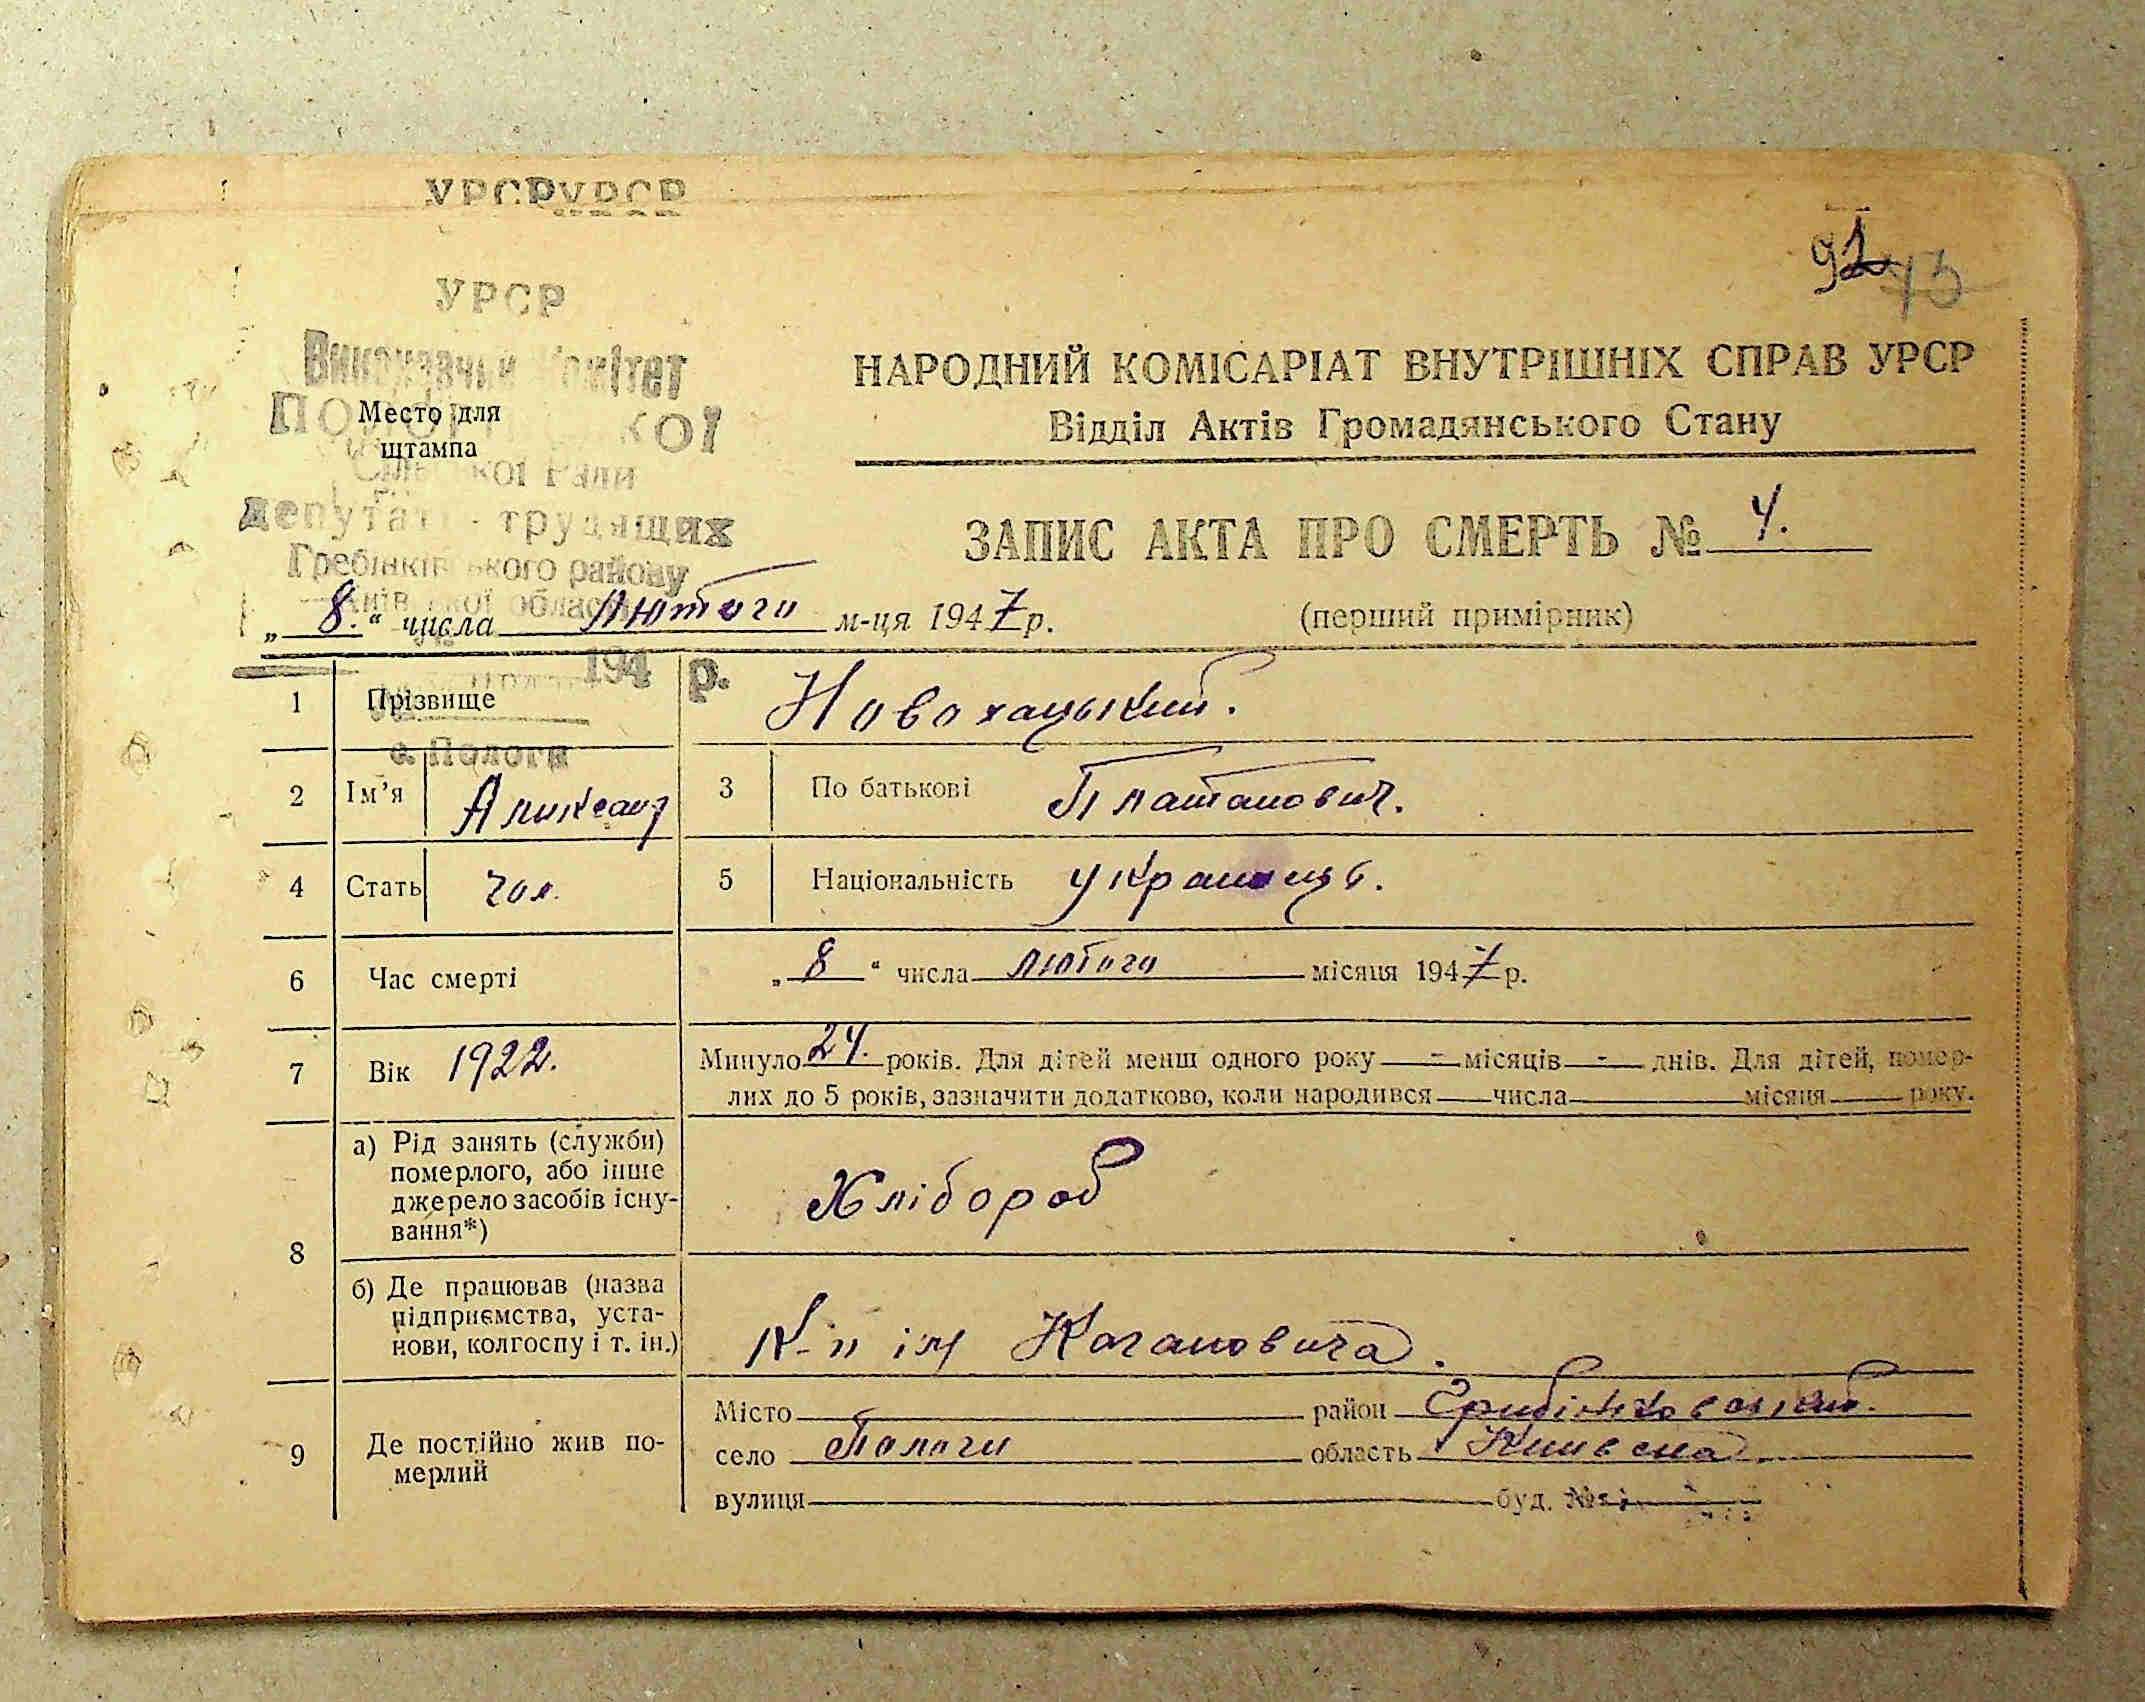 УРСРУРСР
УРСР
Виконавчий Комітет
Сільської Ради
депутатів трудящих
Гребінківського району
Київської області
194 р.
с. Пологи
Место для
штампа
91 73
НАРОДНИЙ КОМІСАРІАТ ВНУТРІШНІХ СПРАВ УРСР
Відділ Актів Громадянського Стану
ЗАПИС АКТА ПРО СМЕРТЬ № 4.
„8.“ числа лютого м-ця 1947 р. (перший примірник)
1 Прізвище Новохацький.
2 Ім’я Александ 3 По батькові Платанович.
4 Стать чол. 5 Національність українець.
6 Час смерті „8“ числа лютого місяця 1947 р.
7 Вік 1922. Минуло 24. років. Для дітей менш одного року - місяців - днів. Для дітей, помер-
лих до 5 років, зазначити додатково, коли народився числа місяця року.
8 а) Рід занять (служби)
померлого, або інше
джерело засобів існу-
вання*)
Хлібороб
б) Де працював (назва
підприємства, уста-
нови, колгоспу і т. ін.)
К-п ім Кагановича.
9 Де постійно жив по-
мерлий
Місто район Грибінковський.
село Пологи область Київська.
вулиця буд. №